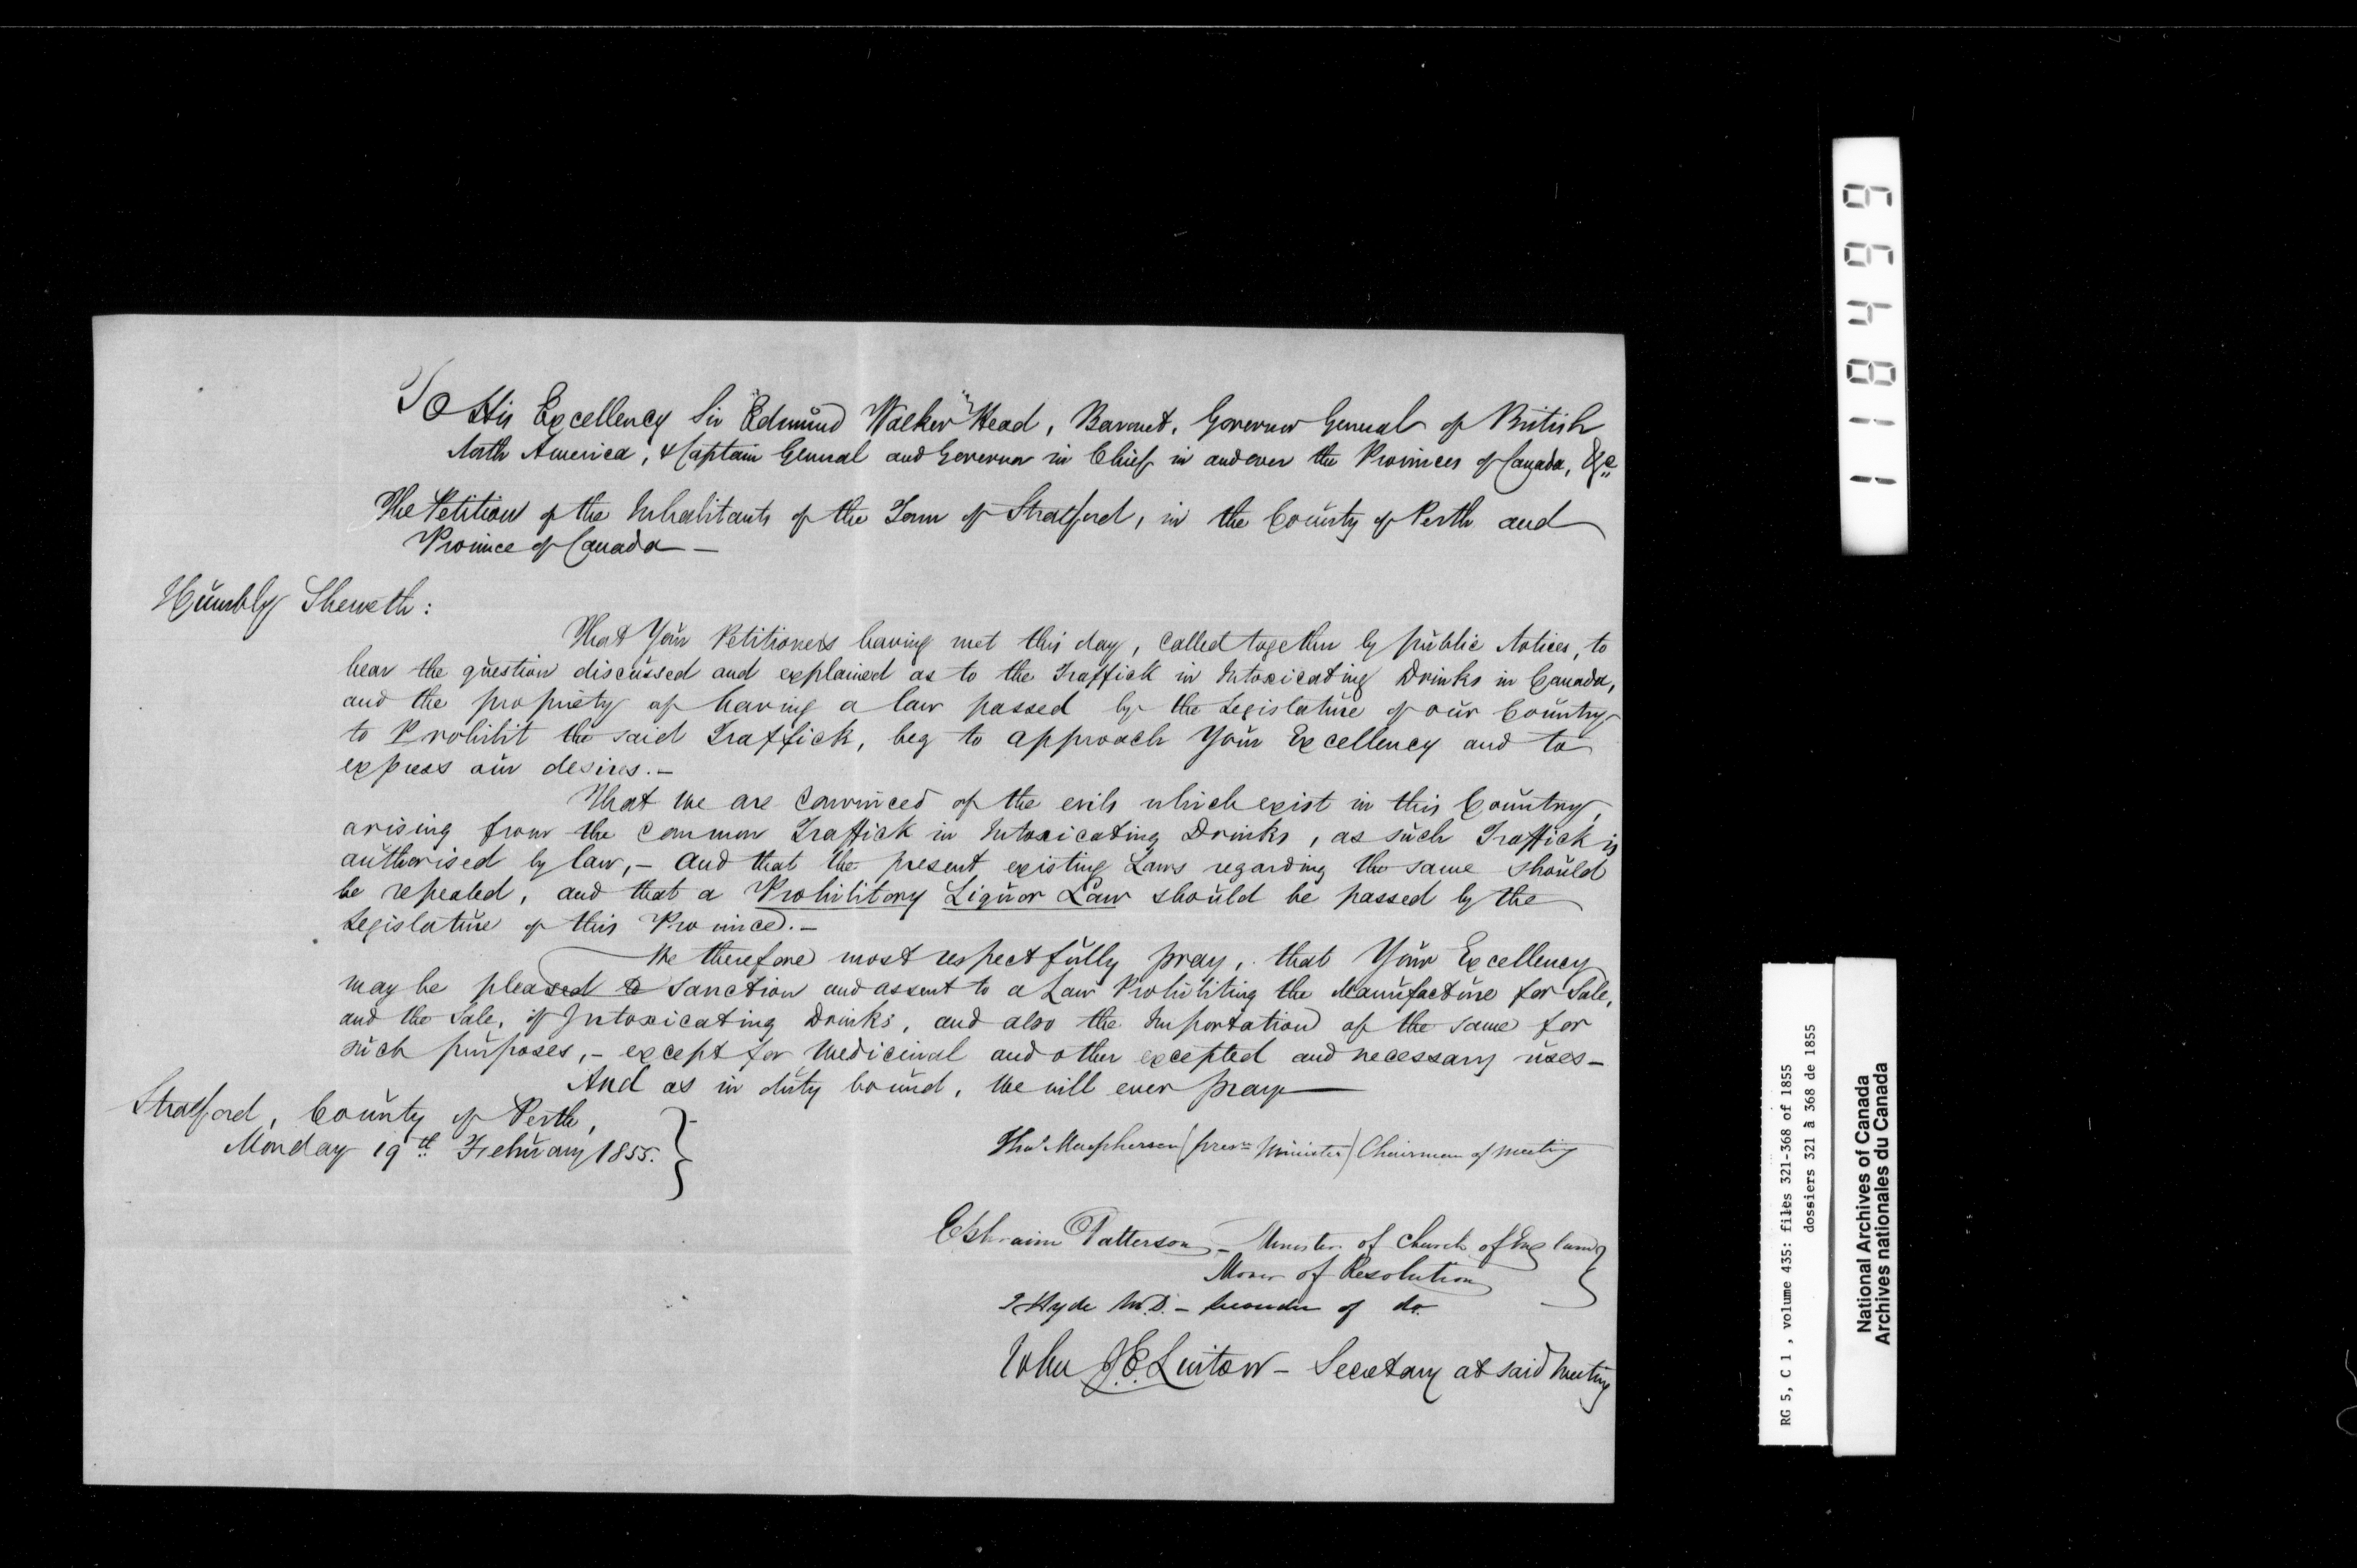 To His Excellency Sir "Edmund Walker" Head, Baronet, Governor General of British
North America, & Captain General and Governor in Chief in and over the Provinces of Canada, &c.
The Petition of the Inhabitants of the Town of Stratford, in the County of Perth and
Province of Canada —
Humbly Sheweth:
That Your Petitioners having met this day, called together by public Notices, to
hear the question discussed and explained as to the Traffick in Intoxicating Drinks in Canada,
and the propriety of having a law passed by the Legislature of our Country
to Prohibit the said Traffick, beg to approach Your Excellency and to
express our desires.—
That we are convinced of the evils which exist in this Country,
arising from the common Traffick in Intoxicating Drinks, as such Traffick is
authorised by law,— and that the present existing Laws regarding the same should
be repealed, and that a Prohibitory Liquor Law should be passed by the
Legislature of this Province.—
We therefore most respectfully pray, that Your Excellency
may be pleased to sanction and assent to a Law Prohibiting the Manufacture for Sale,
and the Sale, of Intoxicating Drinks, and also the Importation of the same for
such purposes,— except for Medicinal and other excepted and necessary uses—
And as in duty bound, we will ever pray—
Stratford, County of Perth,
Monday 19th February 1855.
Thos Macpherson (Presn Minister) Chairman of meeting
Ephraim Patterson — Minister of Church of England
Mover of Resolution
J Hyde M.D. — Seconder of do.
John J. E. Linton — Secretary at said Meeting
118499
RG 5, C 1, volume 435: files 321-368 of 1855
dossiers 321 à 368 de 1855
National Archives of Canada
Archives nationales du Canada